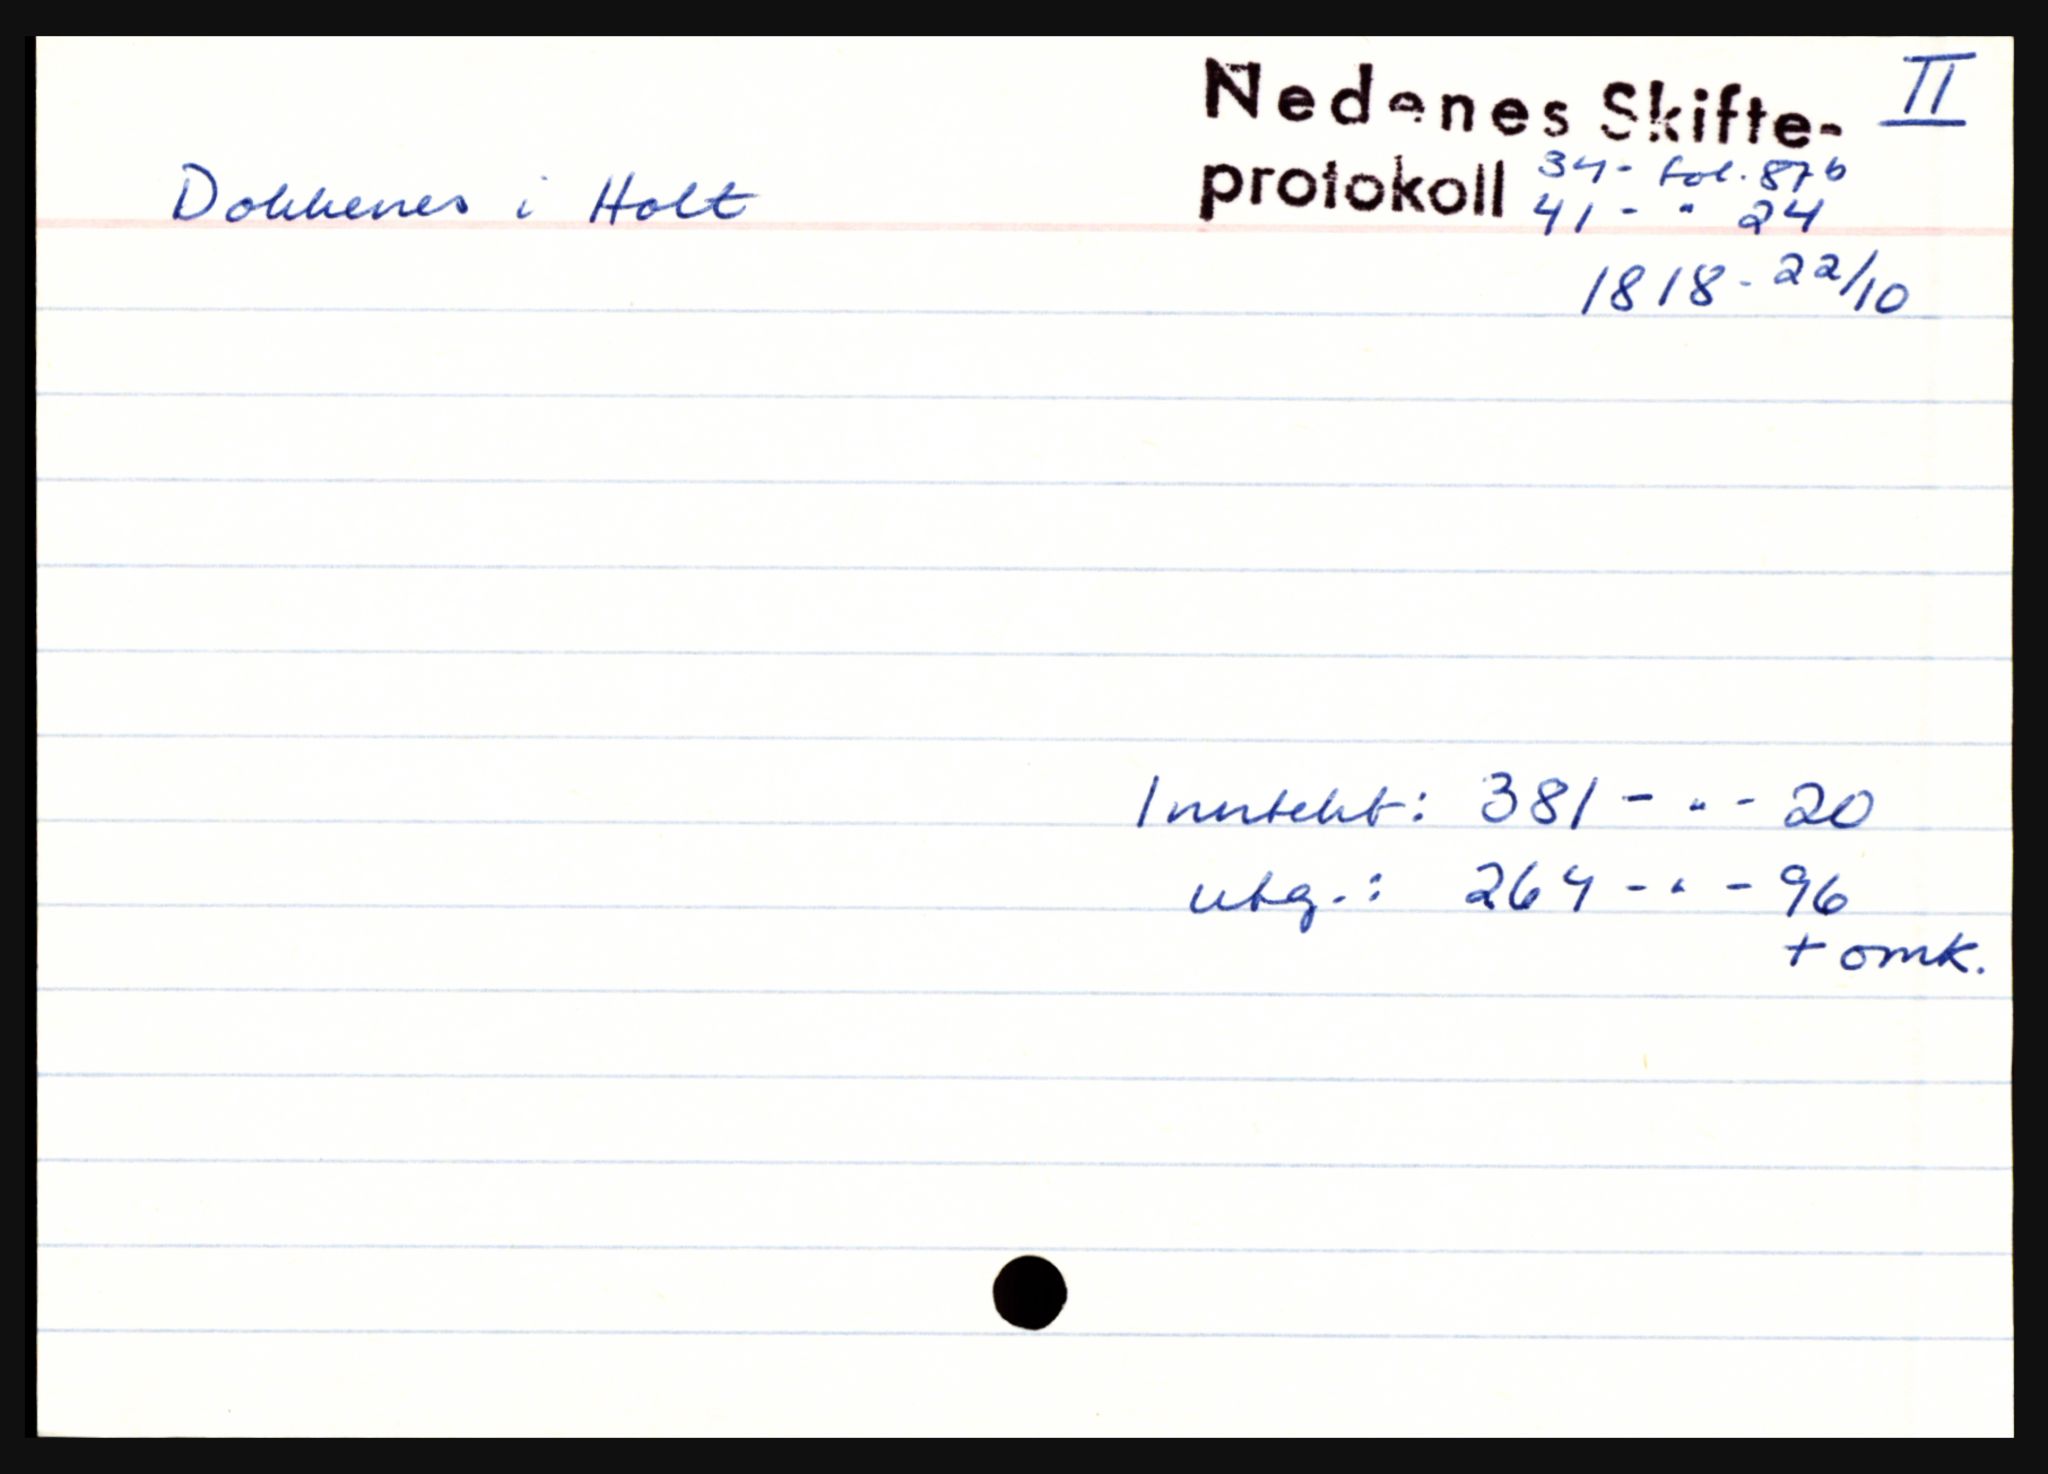 Nedenes Skifte- II
protokoll 34 - fol. 87b
41 - " 24
Dokkenes i Holt
1818 - 22/10
Inntekt: 381 - " - 20
utg.: 264 - " - 96
+ omk.